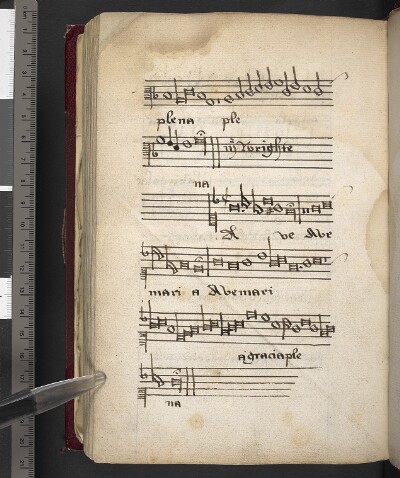 plena ple
na
A ve Ave
mari a Avemari
agraciaple
na